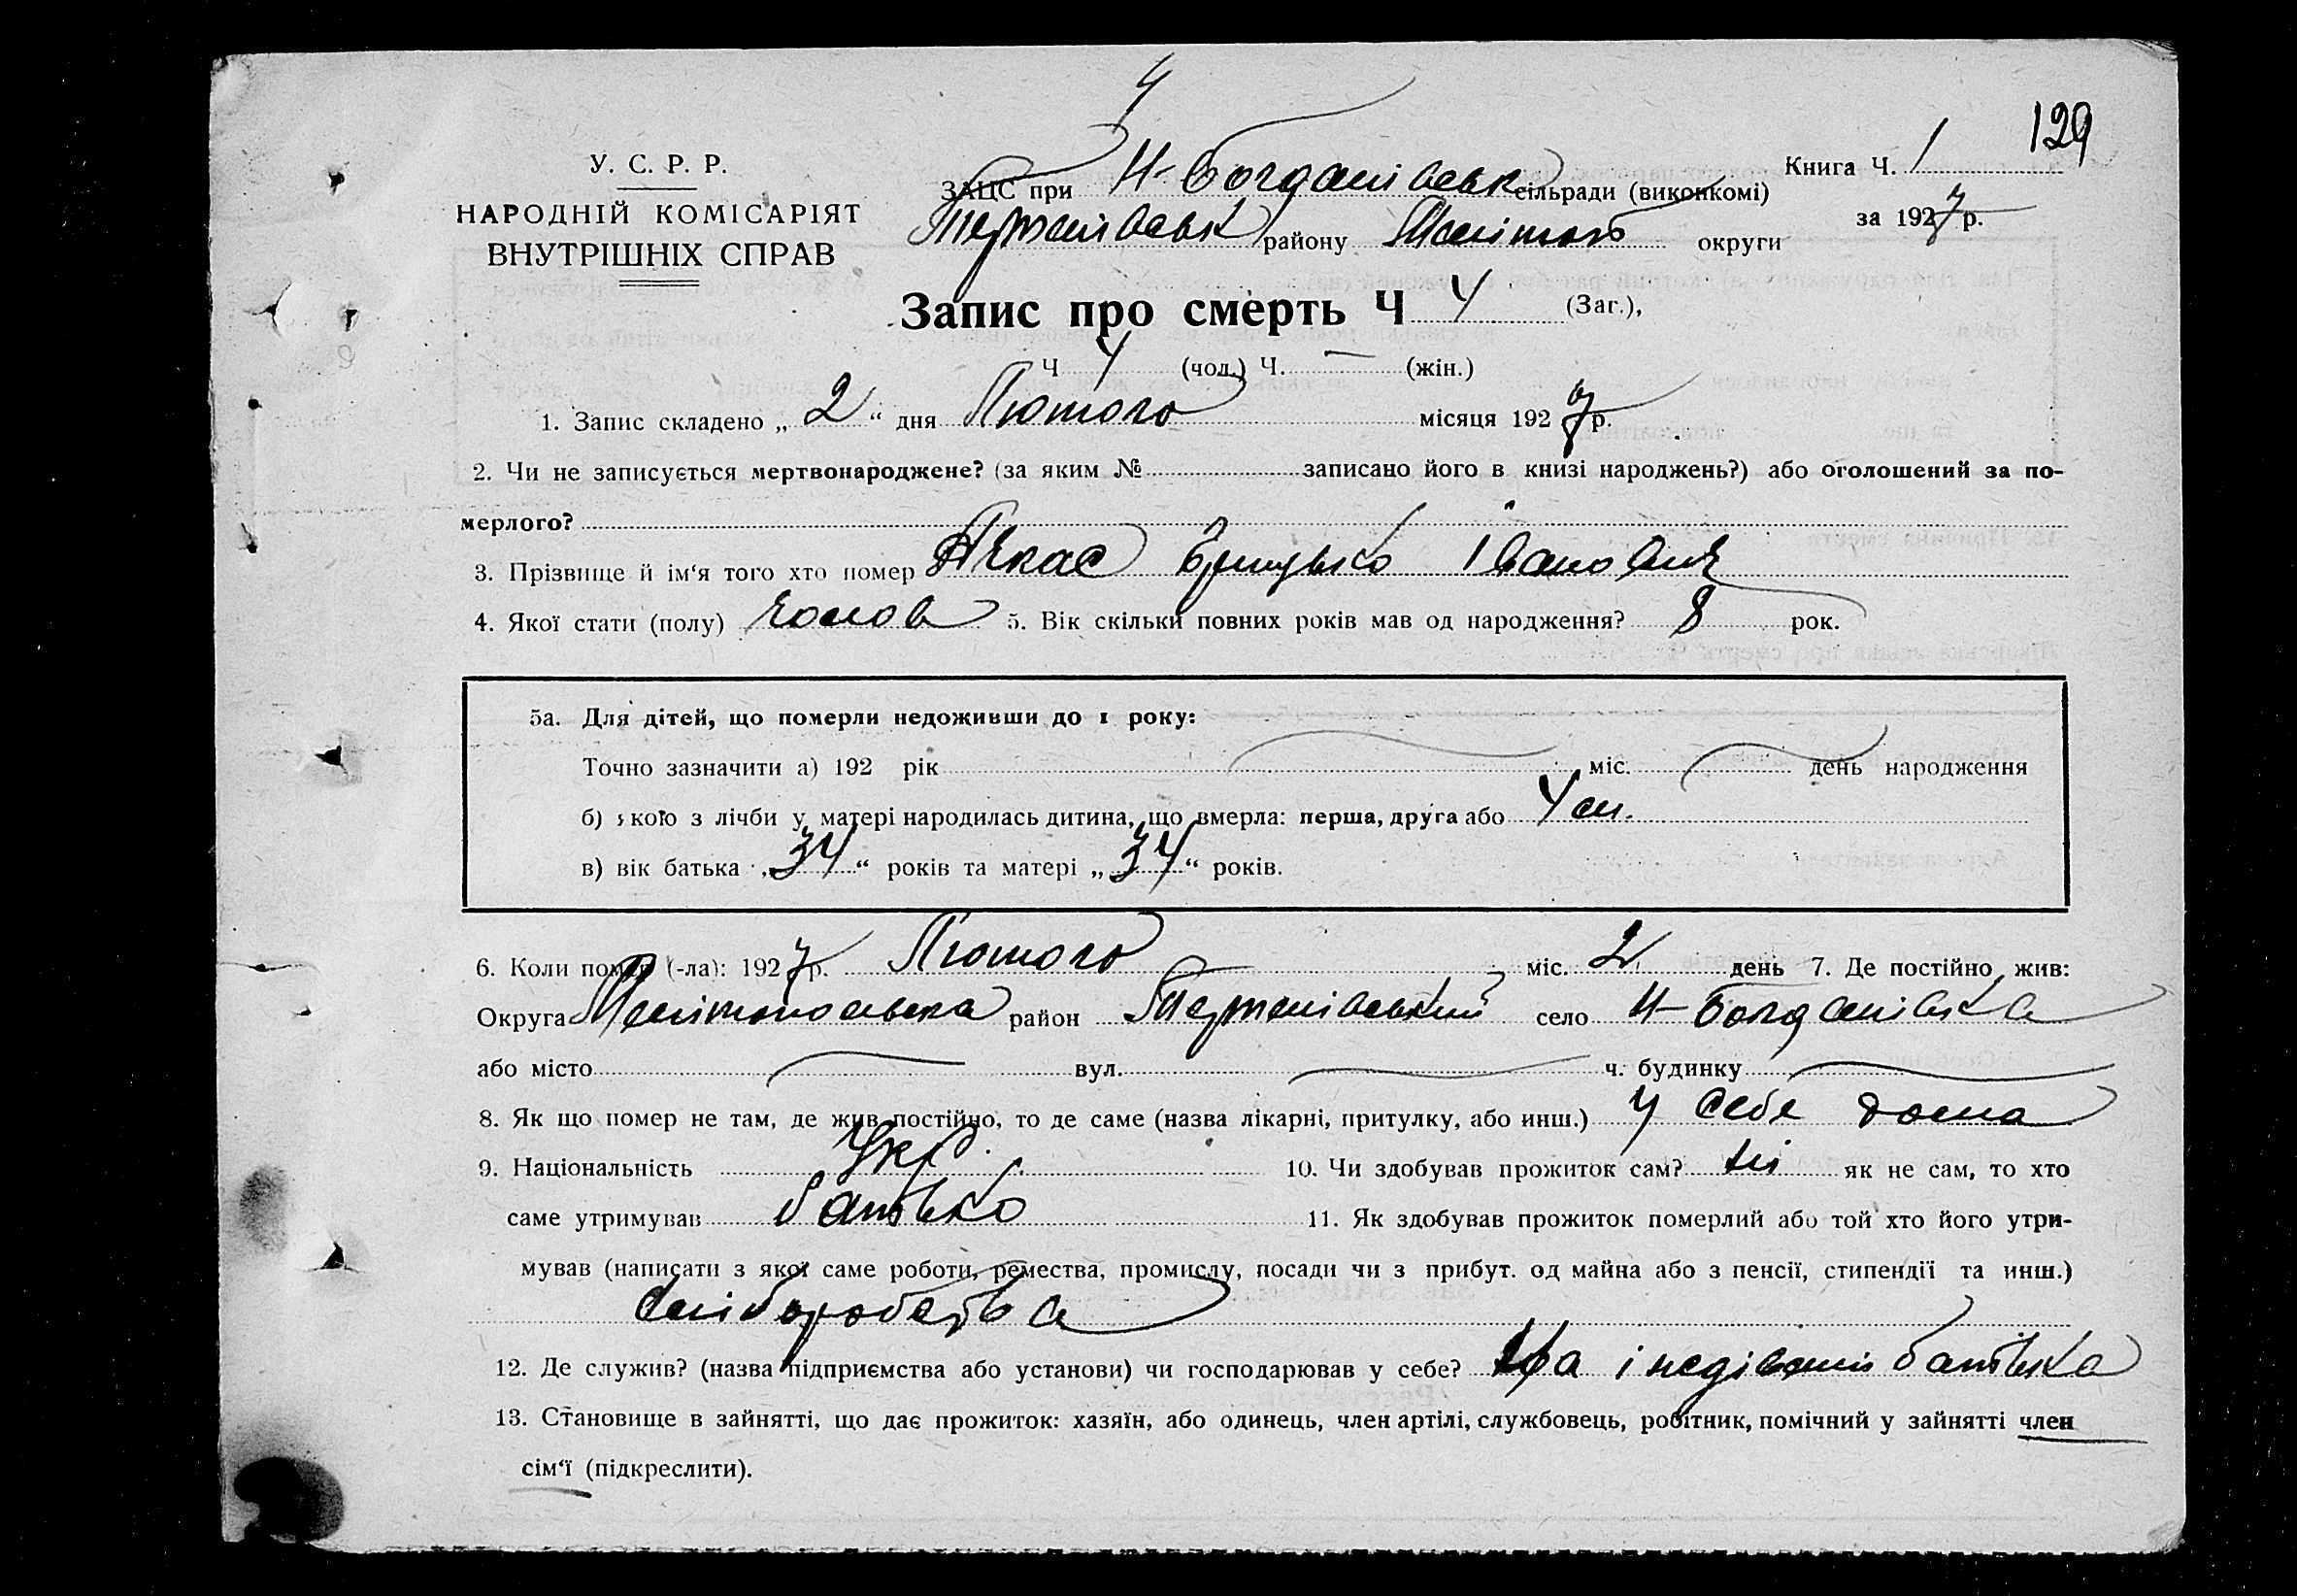 4
129
У. С. Р. Р.
НАРОДНІЙ КОМІСАРІЯТ
ВНУТРІШНІХ СПРАВ
ЗАЦС при Н-Богданівськ сільради (виконкомі)
Книга Ч. 1
району Меліт округи
за 1927 р.
Запис про смерть Ч 4 (Заг.),
Ч 4 (чол.) Ч. — (жін.)
1. Запис складено „ 2 “ дня Лютого місяця 1927 р.
2. Чи не записується мертвонароджене? (за яким № записано його в книзі народжень?) або оголошений за по-
мерлого?
3. Прізвище й ім‘я того хто помер Грицько Іванович
4. Якої стати (полу) чолов 5. Вік скільки повних років мав од народження? 8 рок.
5а. Для дітей, що померли недоживши до 1 року:
Точно зазначити а) 192 рік міс. день народження
б) якою з лічби у матері народилась дитина, що вмерла: перша, друга або 4
в) вік батька „ 34 “ років та матері „ 34 “ років.
6. Коли помер (-ла): 1927 р. Лютого міс. 2 день 7. Де постійно жив:
Округа Мелітопольська район село Н-Богданівка
або місто вул. ч. будинку
8. Як що помер не там, де жив постійно, то де саме (назва лікарні, притулку, або инш.) у себе дома
9. Національність Укр. 10. Чи здобував прожиток сам? ні як не сам, то хто
саме утримував батько 11. Як здобував прожиток померлий або той хто його утри-
мував (написати з якої саме роботи, ремества, промислу, посади чи з прибут. од майна або з пенсії, стипендії та инш.)
хліборобства
12. Де служив? (назва підприємства або установи) чи господарював у себе? На батька
13. Становище в зайнятті, що дає прожиток: хазяїн, або одинець, член артілі, службовець, робітник, помічний у зайнятті член
сім‘ї (підкреслити).